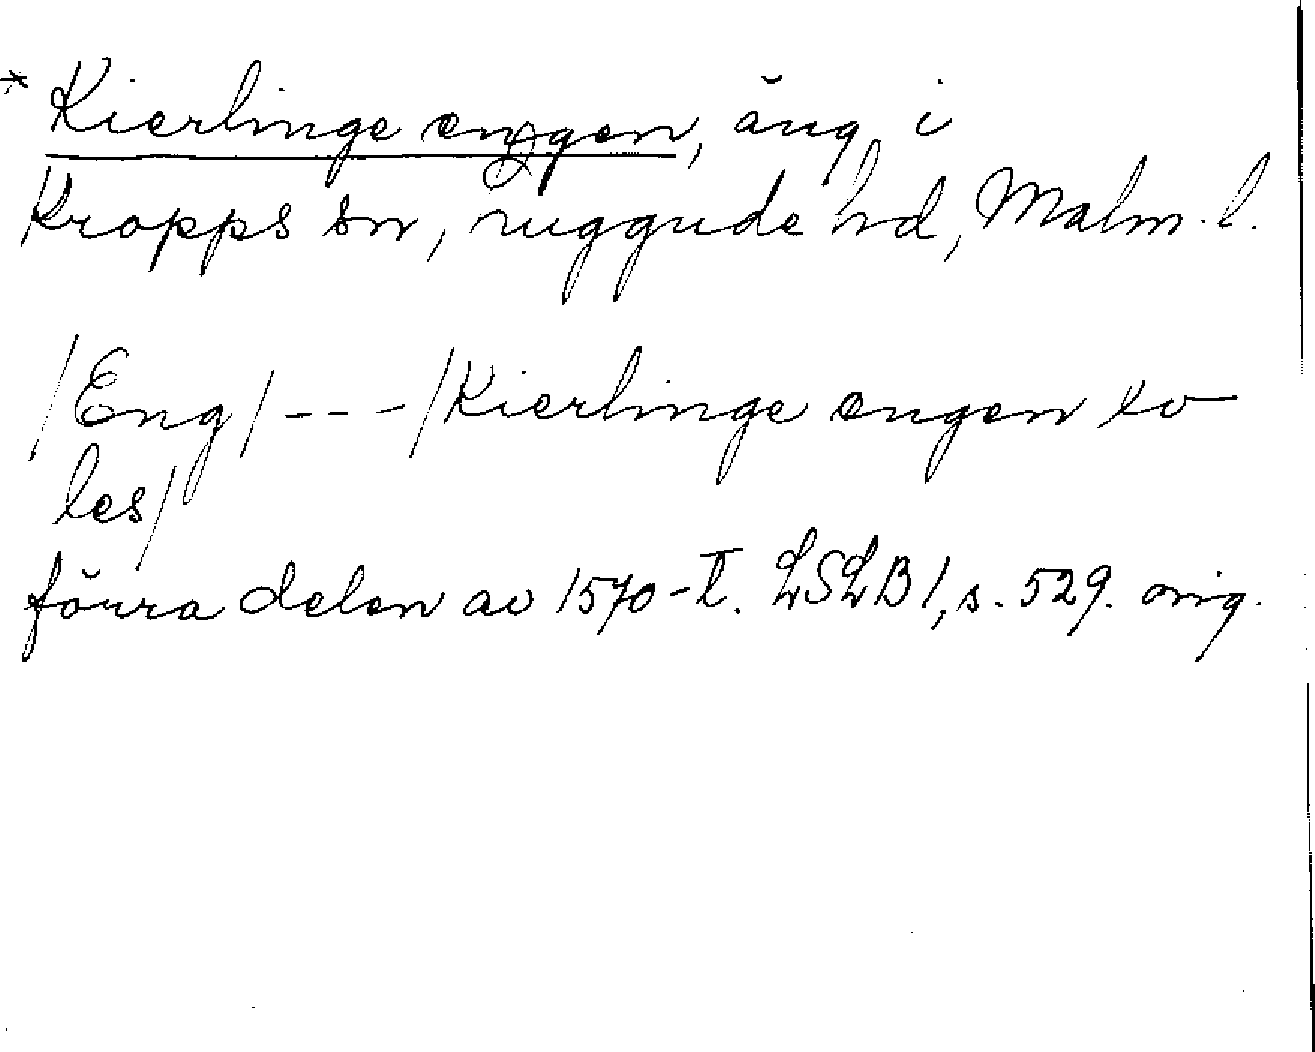 * Kierlinge engen, äng i
Kropps sn, Luggude hd, Malm. l.
/Eng/ --- /Kierlinge engen xv
les/
förra delen av 1570-t. LSLB 1, s. 529. orig.